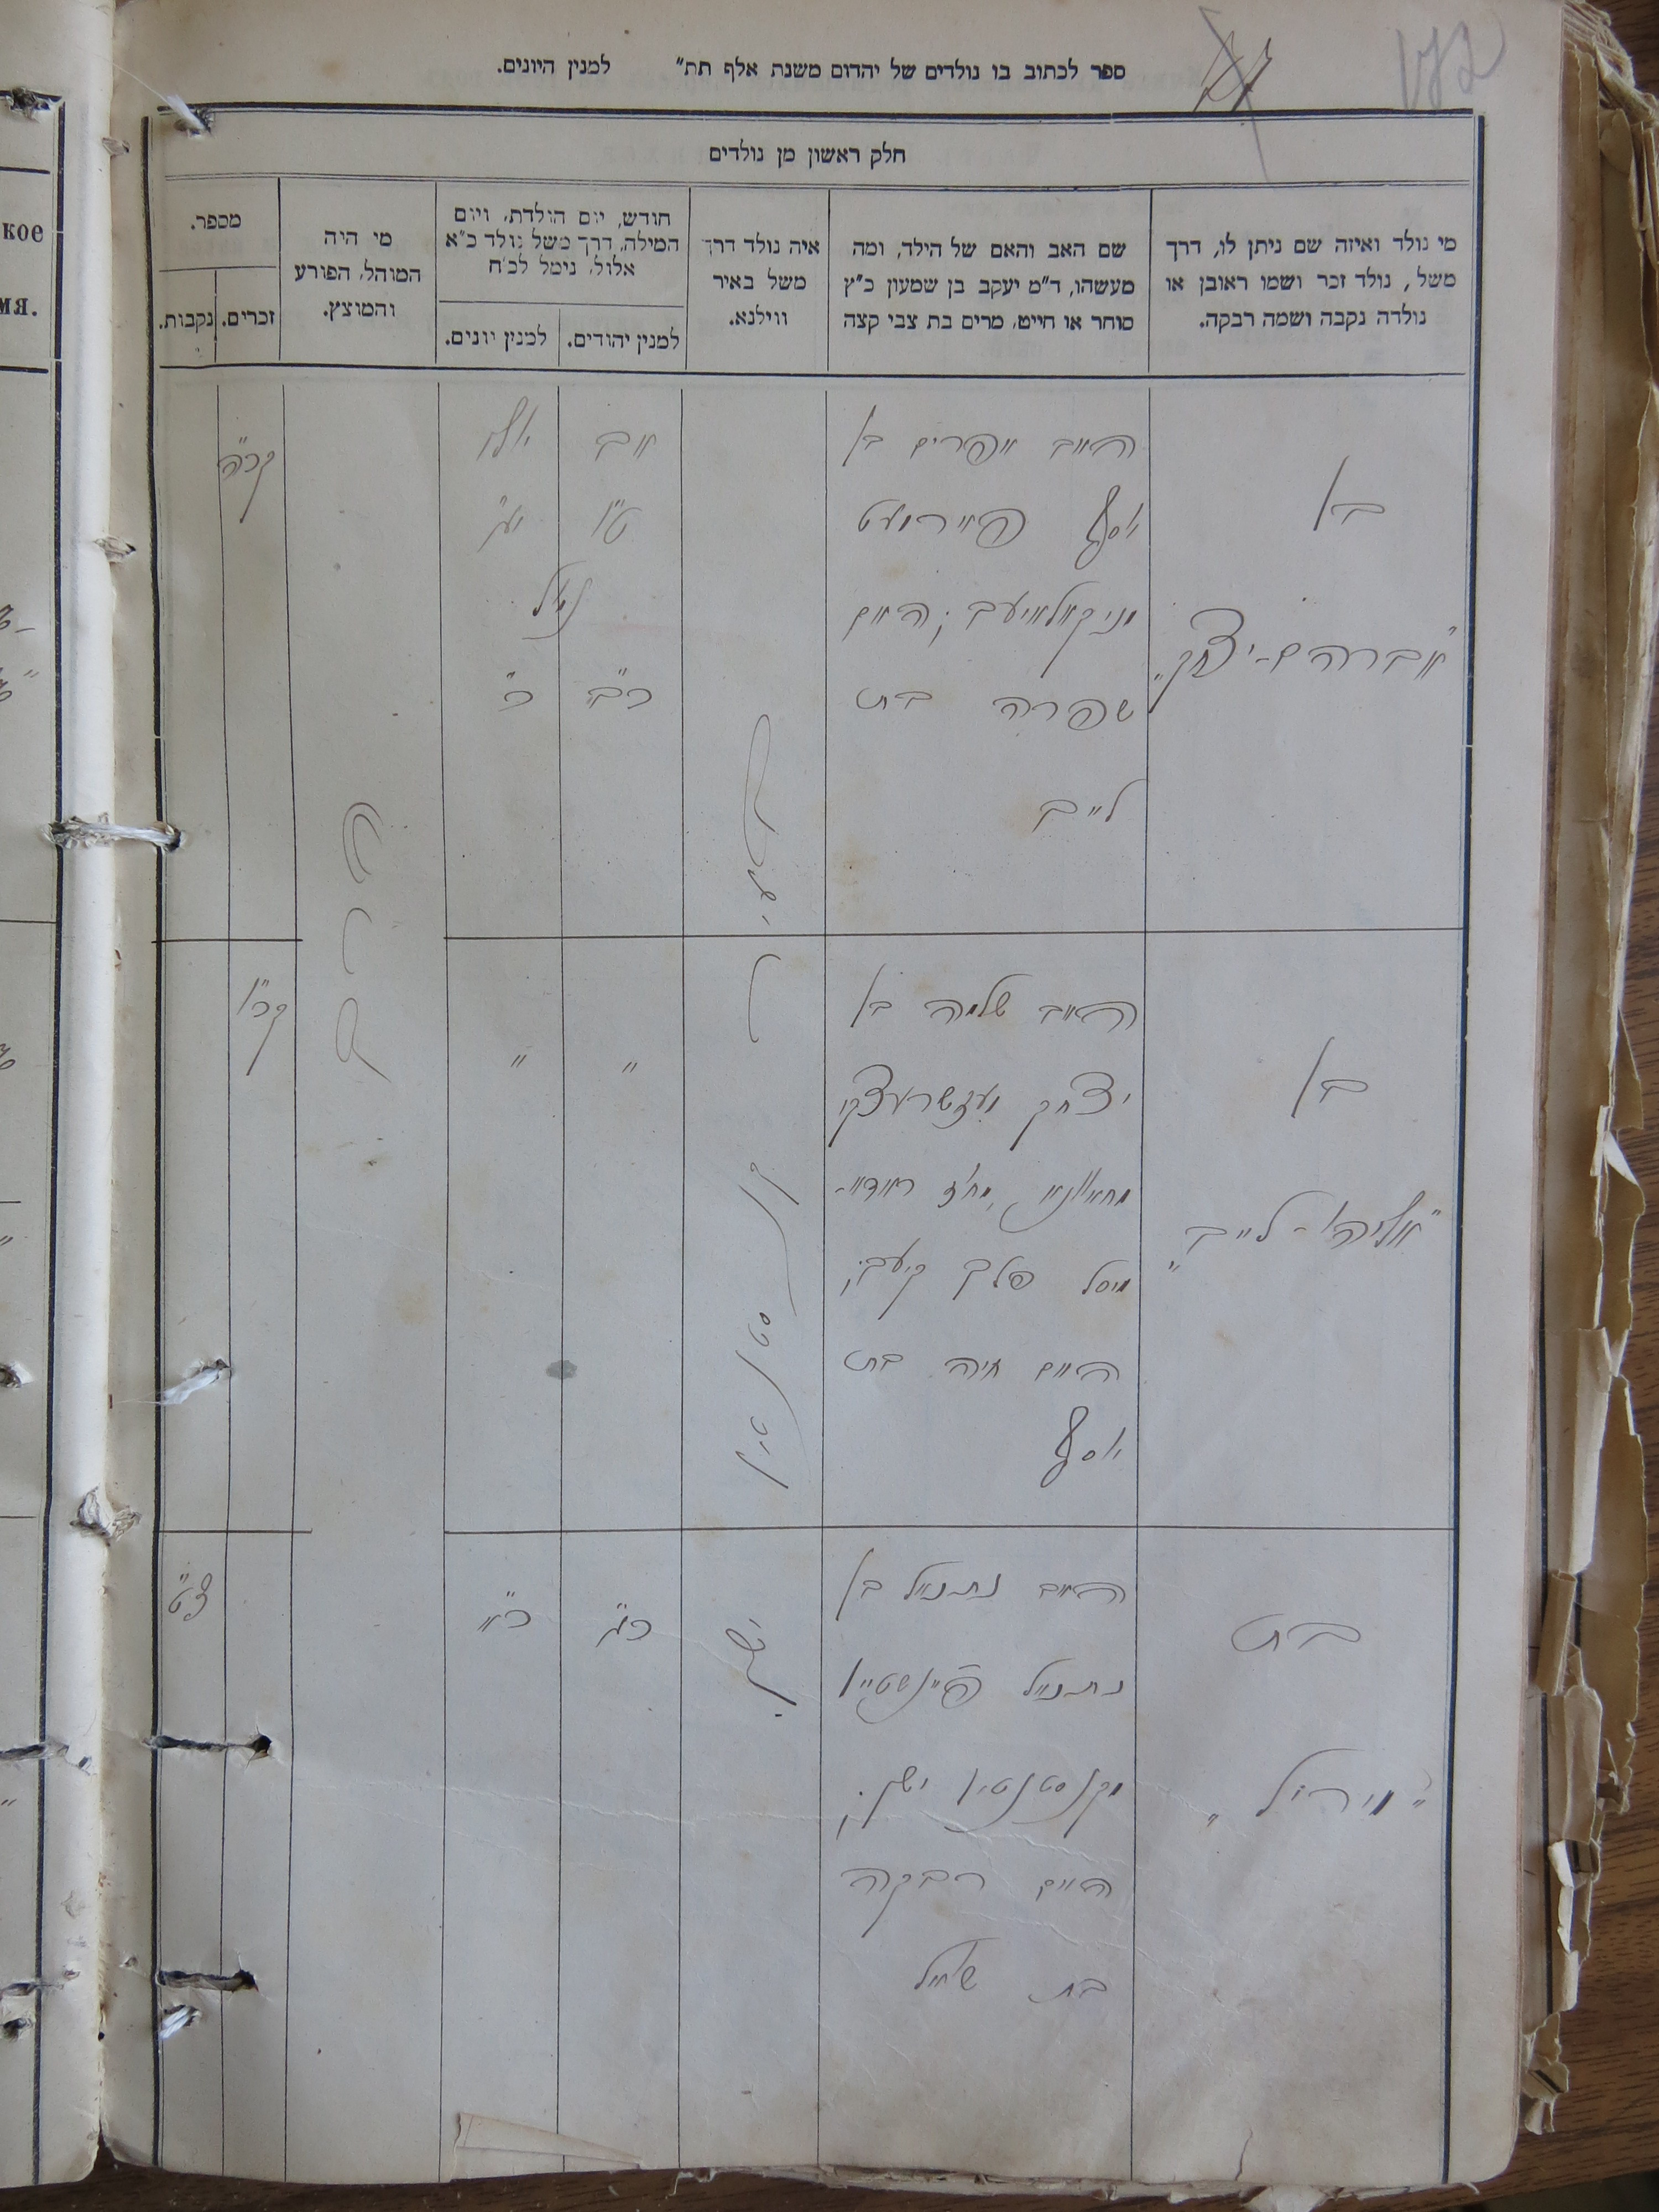 ספר לכתוב בו נולדים של יהדום משנת אלף תת״ למנין היונים.
חלק ראשון מן נולדים
מי נולד ואיזה שם ניתן לו, דרך
משל, נולד זכר ושמו ראובן או
נולדה נקבה ושמה רבקה.
שם האב והאם של הילד, ומה
מעשהו, ד״מ יעקב בן שמעון כ״ץ
סוחר או חייט, מרים בת צבי קצה
איה נולד דרך
משל באיר
ווילנא.
חודש, יום הולדת, ויום
המילה, דרך משל נולד כ״א
אלול, נימל לכ״ח
למנין יהודים.
למנין יונים.
מי היה
המוהל, הפורע
והמוצץ.
מספר.
זכרים.
נקבות.
בן
"אברהם-יצחק"
האב אפרים בן
יוסף
מניקאלאיעב; האם
שפרה בת
לייב
אב
ט״ו
יולי
נימול
כ״ב
כ״
קכ״ה
פה עיר
קנסטנטין
ישן.
הרב
בן
"אליהו-לייב"
האב שלמה בן
יצחק
פלך קיעב;
האם חיה בת
יוסף
"
"
קכ״ו
בת
"מיריל"
האב נתנאל בן
נתנאל פיינשטיין
מקנסטנטין ישן;
האם רבקה
בת שמואל
כ״ג
כ״א
צ״ט
кое
мя.